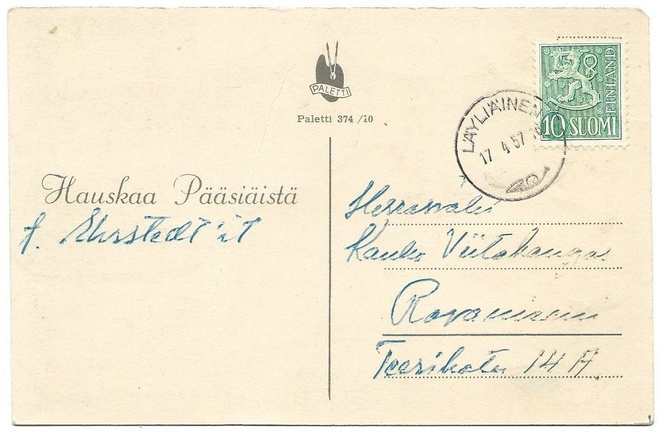 PALETTI
Paletti 374 /10
FINLAND
10 SUOMI
LÄYLIÄINEN
17 4.57
Hauskaa Pääsiäistä
Herrasväki
Kauko Viitakangas
Rovaniemi
14 A.